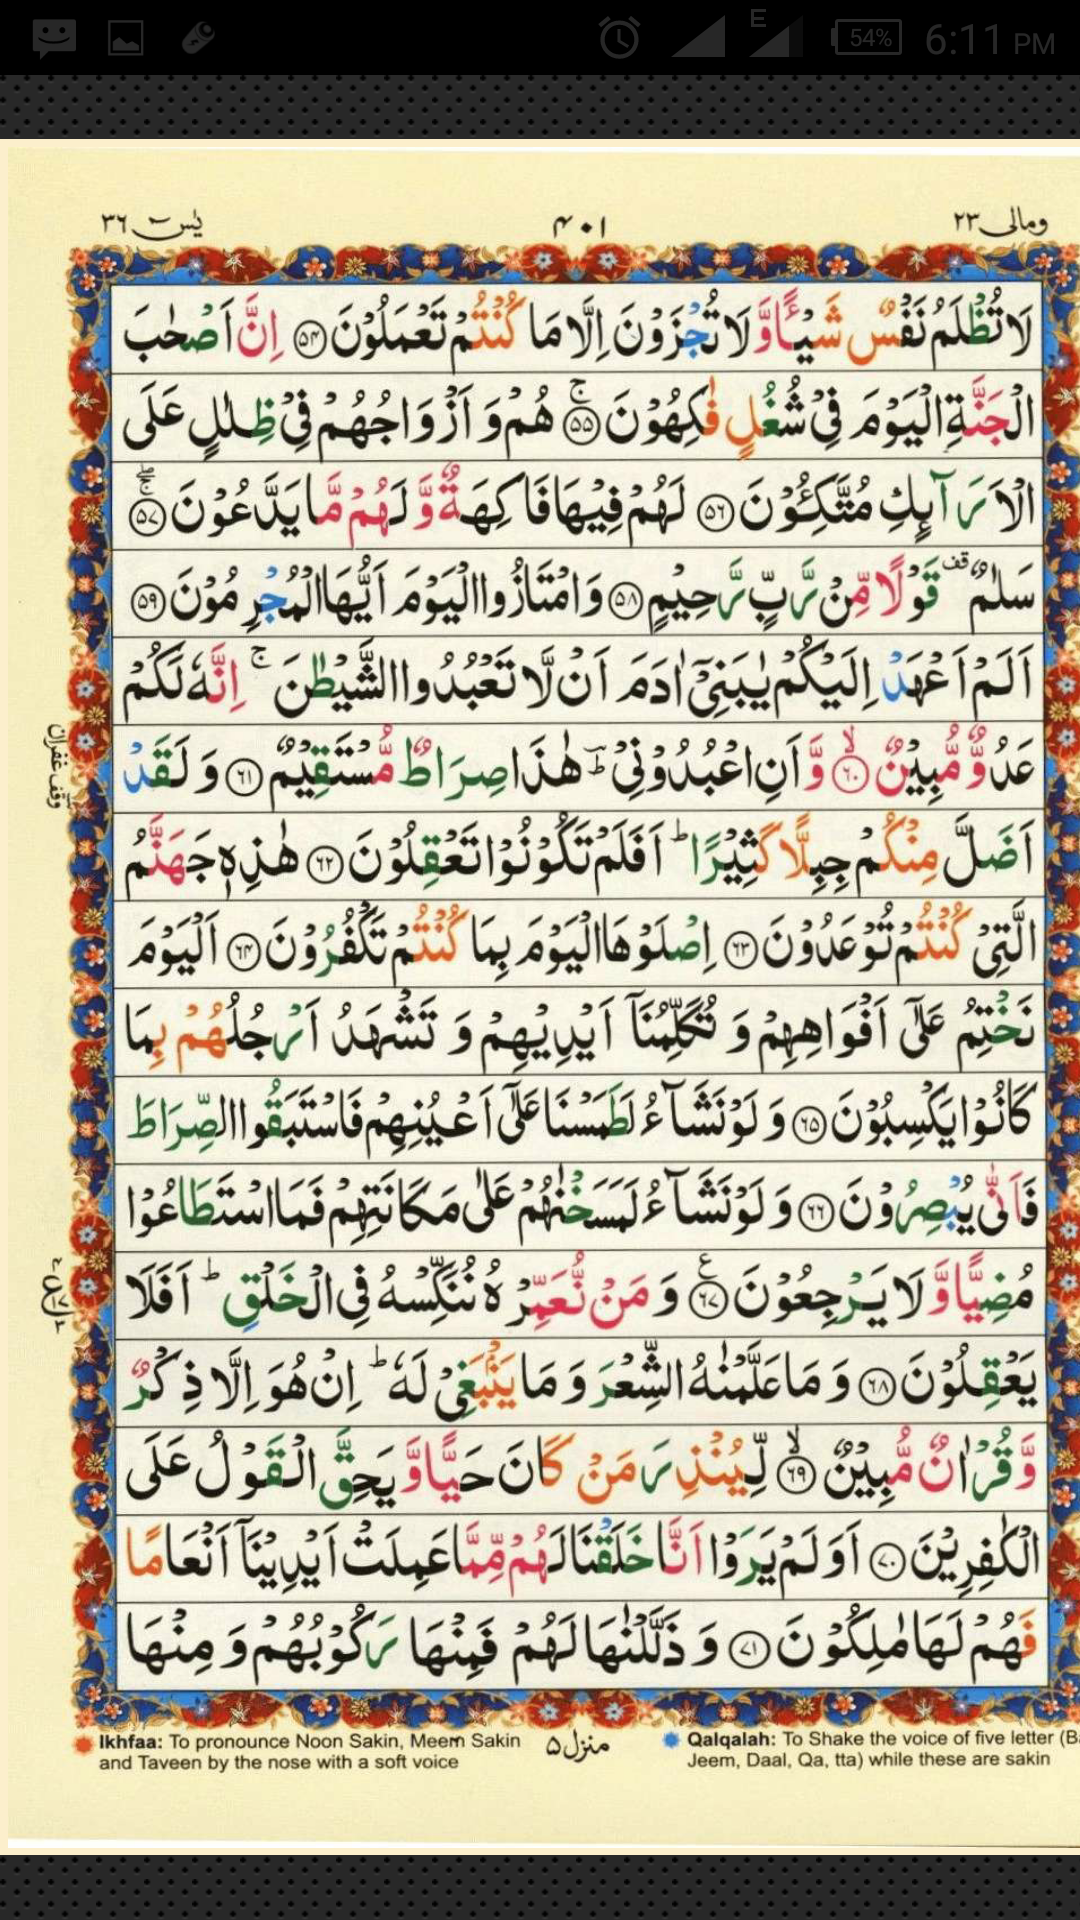 54%
E
6:11 PM
یٰسٓ ٣٦
۴۰۱
ومالی ٢٣
لَا تُظْلَمُ نَفْسٌ شَیْـًٔا وَّ لَا تُجْزَوْنَ اِلَّا مَا كُنْتُمْ تَعْمَلُوْنَ ﴿۵۴﴾ اِنَّ اَصْحٰبَ
الْجَنَّةِ الْیَوْمَ فِیْ شُغُلٍ فٰكِهُوْنَ ﴿۵۵﴾ۚ هُمْ وَ اَزْوَاجُهُمْ فِیْ ظِلٰلٍ عَلَی
الْاَرَآىِٕكِ مُتَّكِـُٔوْنَ ﴿۵۶﴾ لَهُمْ فِیْهَا فَاكِهَةٌ وَّ لَهُمْ مَّا یَدَّعُوْنَ ﴿۵۷﴾ۚۖ
سَلٰمٌ ۫ قف قَوْلًا مِّنْ رَّبٍّ رَّحِیْمٍ ﴿۵۸﴾ وَ امْتَازُوا الْیَوْمَ اَیُّهَا الْمُجْرِمُوْنَ ﴿۵۹﴾
اَلَمْ اَعْهَدْ اِلَیْكُمْ یٰبَنِیْۤ اٰدَمَ اَنْ لَّا تَعْبُدُوا الشَّیْطٰنَ ۚ اِنَّهٗ لَكُمْ
عَدُوٌّ مُّبِیْنٌ ﴿۶۰﴾ۙ وَّ اَنِ اعْبُدُوْنِیْ ؔؕ هٰذَا صِرَاطٌ مُّسْتَقِیْمٌ ﴿۶۱﴾ وَ لَقَدْ
وقف غفران
اَضَلَّ مِنْكُمْ جِبِلًّا كَثِیْرًا ؕ اَفَلَمْ تَكُوْنُوْا تَعْقِلُوْنَ ﴿۶۲﴾ هٰذِهٖ جَهَنَّمُ
الَّتِیْ كُنْتُمْ تُوْعَدُوْنَ ﴿۶۳﴾ اِصْلَوْهَا الْیَوْمَ بِمَا كُنْتُمْ تَكْفُرُوْنَ ﴿۶۴﴾ اَلْیَوْمَ
نَخْتِمُ عَلٰۤی اَفْوَاهِهِمْ وَ تُكَلِّمُنَاۤ اَیْدِیْهِمْ وَ تَشْهَدُ اَرْجُلُهُمْ بِمَا
كَانُوْا یَكْسِبُوْنَ ﴿۶۵﴾ وَ لَوْ نَشَآءُ لَطَمَسْنَا عَلٰۤی اَعْیُنِهِمْ فَاسْتَبَقُوا الصِّرَاطَ
فَاَنّٰی یُبْصِرُوْنَ ﴿۶۶﴾ وَ لَوْ نَشَآءُ لَمَسَخْنٰهُمْ عَلٰی مَكَانَتِهِمْ فَمَا اسْتَطَاعُوْا
مُضِیًّا وَّ لَا یَرْجِعُوْنَ ﴿۶۷﴾ع وَ مَنْ نُّعَمِّرْهُ نُنَكِّسْهُ فِی الْخَلْقِ ؕ اَفَلَا
یَعْقِلُوْنَ ﴿۶۸﴾ وَ مَا عَلَّمْنٰهُ الشِّعْرَ وَ مَا یَنْۢبَغِیْ لَهٗ ؕ اِنْ هُوَ اِلَّا ذِكْرٌ
وَّ قُرْاٰنٌ مُّبِیْنٌ ﴿۶۹﴾ۙ لِّیُنْذِرَ مَنْ كَانَ حَیًّا وَّ یَحِقَّ الْقَوْلُ عَلَی
الْكٰفِرِیْنَ ﴿۷۰﴾ اَوَ لَمْ یَرَوْا اَنَّا خَلَقْنَا لَهُمْ مِّمَّا عَمِلَتْ اَیْدِیْنَاۤ اَنْعَامًا
فَهُمْ لَهَا مٰلِكُوْنَ ﴿۷۱﴾ وَ ذَلَّلْنٰهَا لَهُمْ فَمِنْهَا رَكُوْبُهُمْ وَ مِنْهَا
Ikhfaa: To pronounce Noon Sakin, Meem Sakin
and Taveen by the nose with a soft voice
منزل ۵
Qalqalah: To Shake the voice of five letter (Ba
Jeem, Daal, Qa, tta) while these are sakin